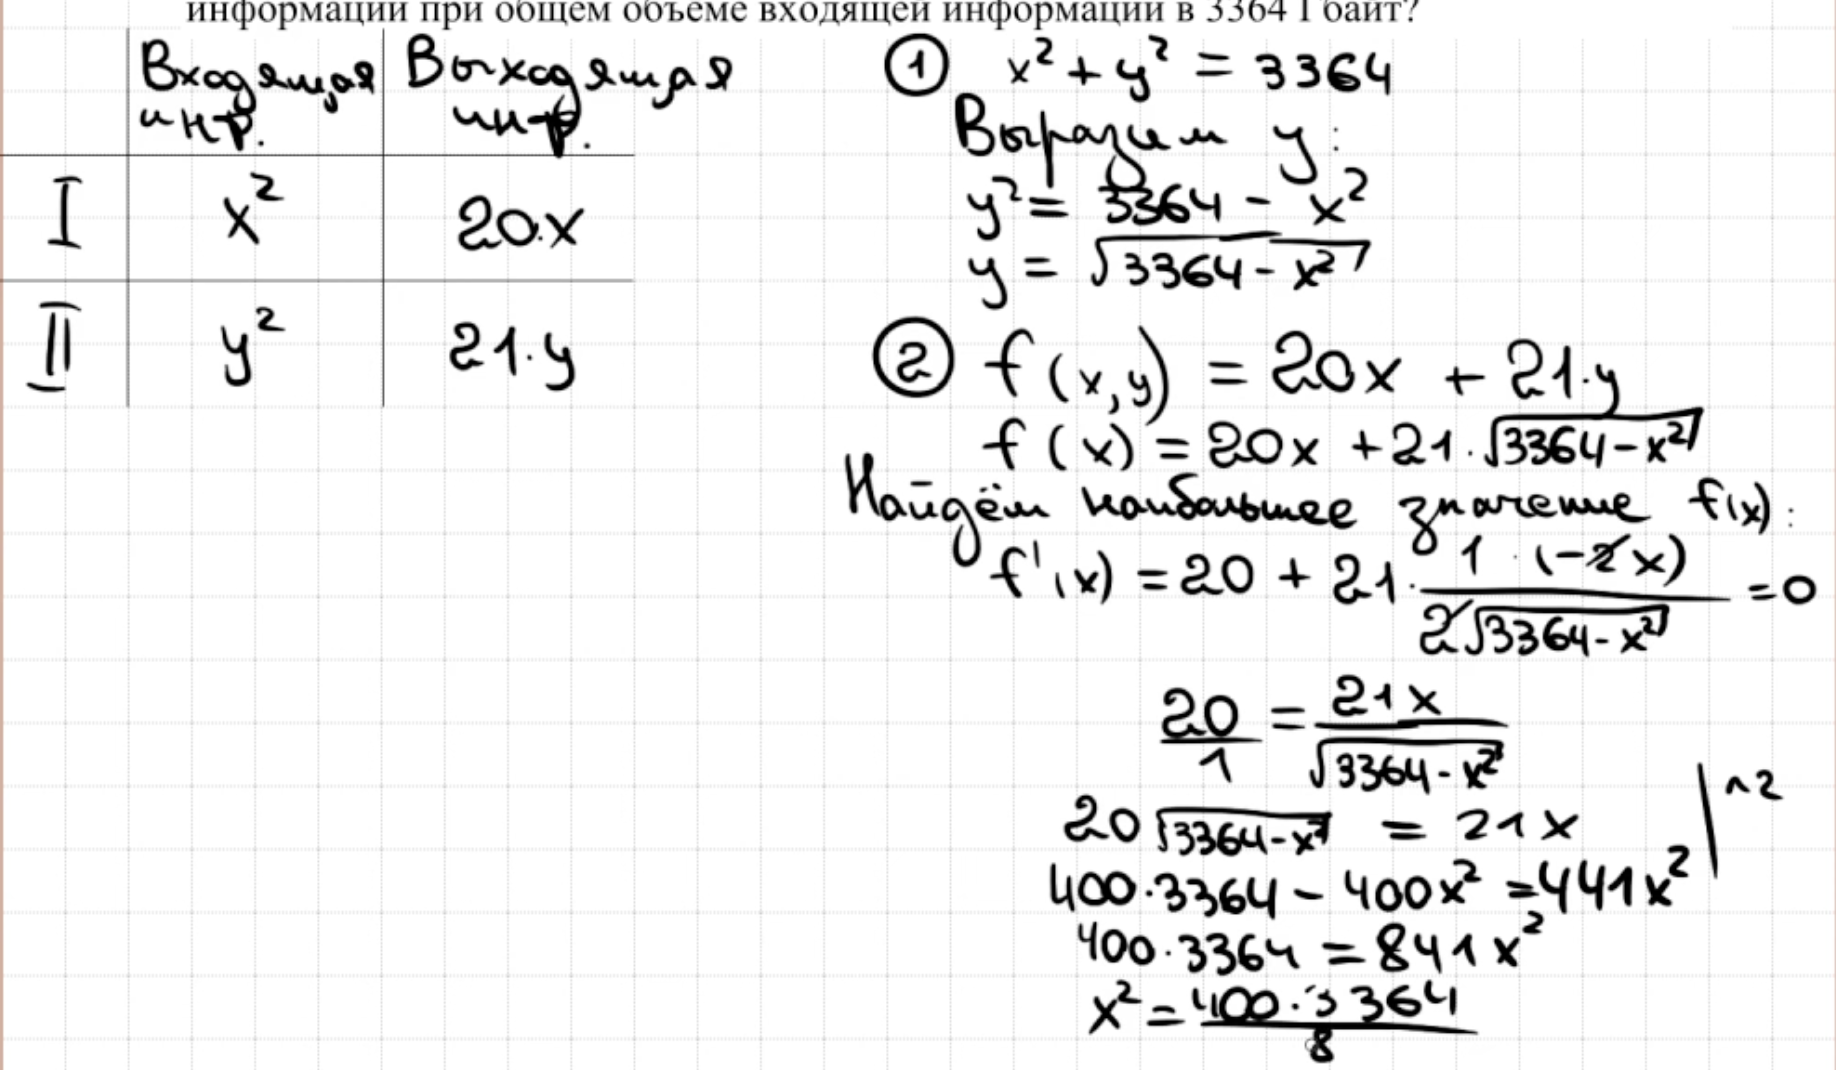 информации при общем объеме входящей информации в 3364 Гбайт?
Входящая инф. Выходящая инф.
I x² 20·x
II y² 21·y
① x² + y² = 3364
Выразим y:
y² = 3364 - x²
y = √(3364 - x²)
② f(x,y) = 20x + 21·y
f(x) = 20x + 21·√(3364-x²)
Найдём наибольшее значение f(x):
f'(x) = 20 + 21· 1·(-2x) / 2√(3364-x²) = 0
20/1 = 21x / √(3364-x²)
20√(3364-x²) = 21x |^2
400·3364 - 400x² = 441x²
400·3364 = 841x²
x² = 400·3364 / 8